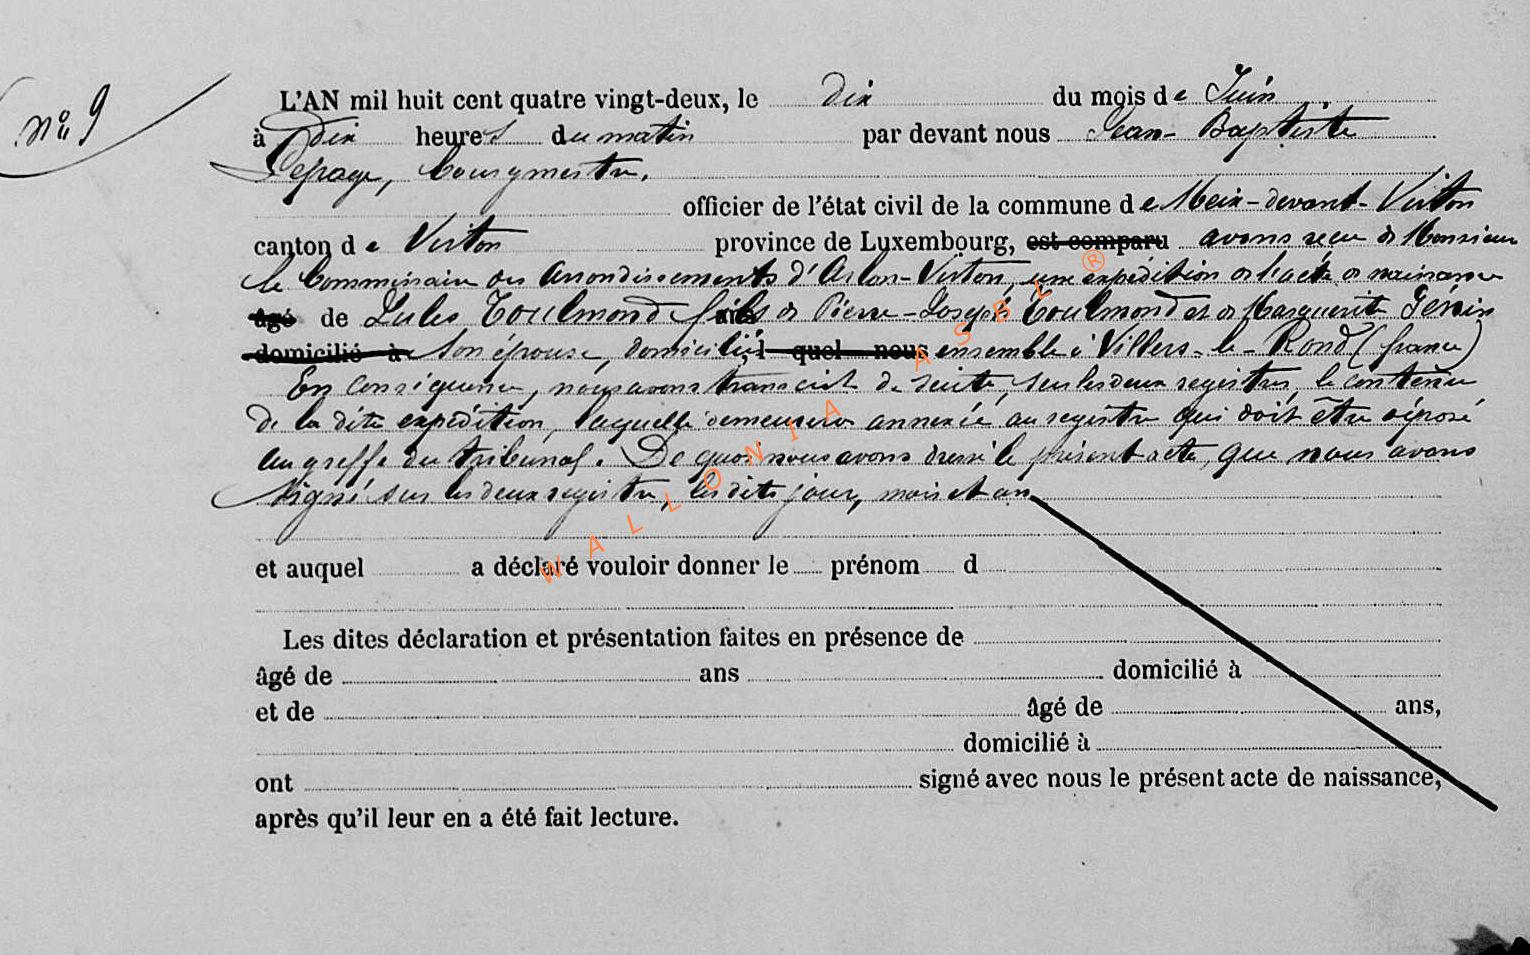 n° 9
L'AN mil huit cent quatre vingt-deux, le dix du mois de Juin
à dix heures du matin par devant nous Jean-Baptiste
Lepage, bourgmestre,
officier de l'état civil de la commune de Meix-devant-Virton
canton de Virton province de Luxembourg, est comparu avons reçu de Monsieur
le Commissaire des Arrondissements d'Arlon-Virton, une expédition de l'acte de naissance
âgé de Jules Toulmond fils de Pierre-Joseph Toulmond et de Marguerite Génin
domicilié à son épouse, domiciliés, l quel nous ensemble à Villers-le-Rond (france)
En conséquence, nous avons transcrit de suite, sur les deux registres, le contenu
de la dite expédition, laquelle demeurera annexée au registre qui doit être déposé
au greffe du tribunal. De quoi nous avons dressé le présent acte, que nous avons
signé sur les deux registres, les dits jour, mois et an
et auquel a déclaré vouloir donner le prénom d
Les dites déclaration et présentation faites en présence de
âgé de ans domicilié à
et de âgé de ans,
domicilié à
ont signé avec nous le présent acte de naissance,
après qu'il leur en a été fait lecture.
WALLONIA ASBL ®